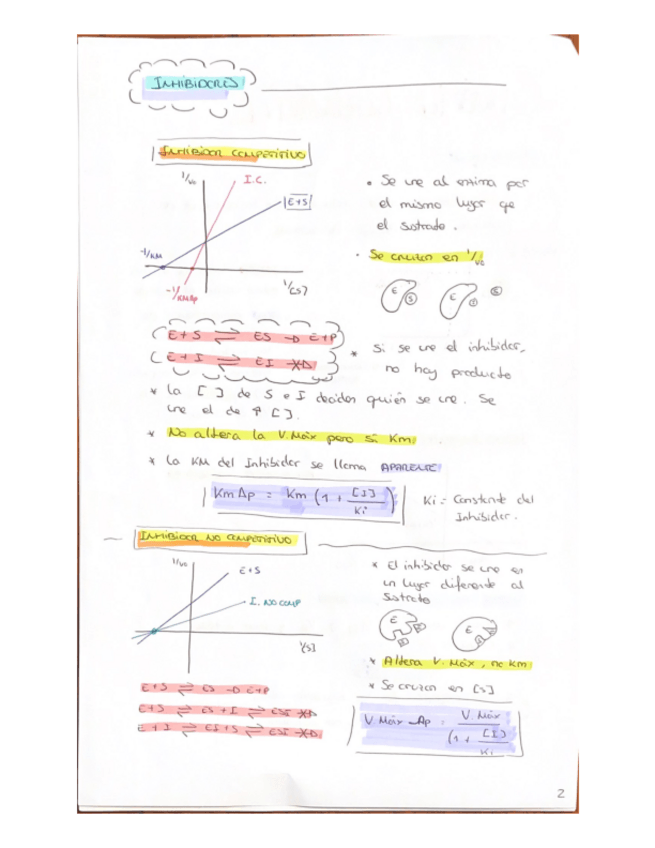 INHIBIDORES
INHIBIDOR COMPETITIVO
1/V₀
I.C.
E+S
-1/KM
-1/KMAp
1/[S]
• Se une al enzima por
el mismo lugar que
el sustrato.
• Se cruzan en 1/V₀
E S E I S
E+S ⇌ ES → E+P
E+I ⇌ EI
* Si se une el inhibidor,
no hay producto
* La [ ] de S e I deciden quién se une. Se
une el de ↑ [ ].
* No altera la V.Máx pero si Km
* La KM del Inhibidor se llama APARENTE
KmAp = Km (1 + [I]/Ki)
Ki = Constante del
Inhibidor.
INHIBIDOR NO COMPETITIVO
1/V₀
E+S
I. NO COMP
1/[S]
* El inhibidor se une en
un lugar diferente al
sustrato
E E
* Altera V. Máx, no Km
* Se cruzan en [S]
E+S ⇌ ES → E+P
E+S ⇌ ES + I ⇌ ESI
E+I ⇌ EI+S ⇌ ESI
V Máx Ap = V. Máx / (1 + [I]/Ki
2